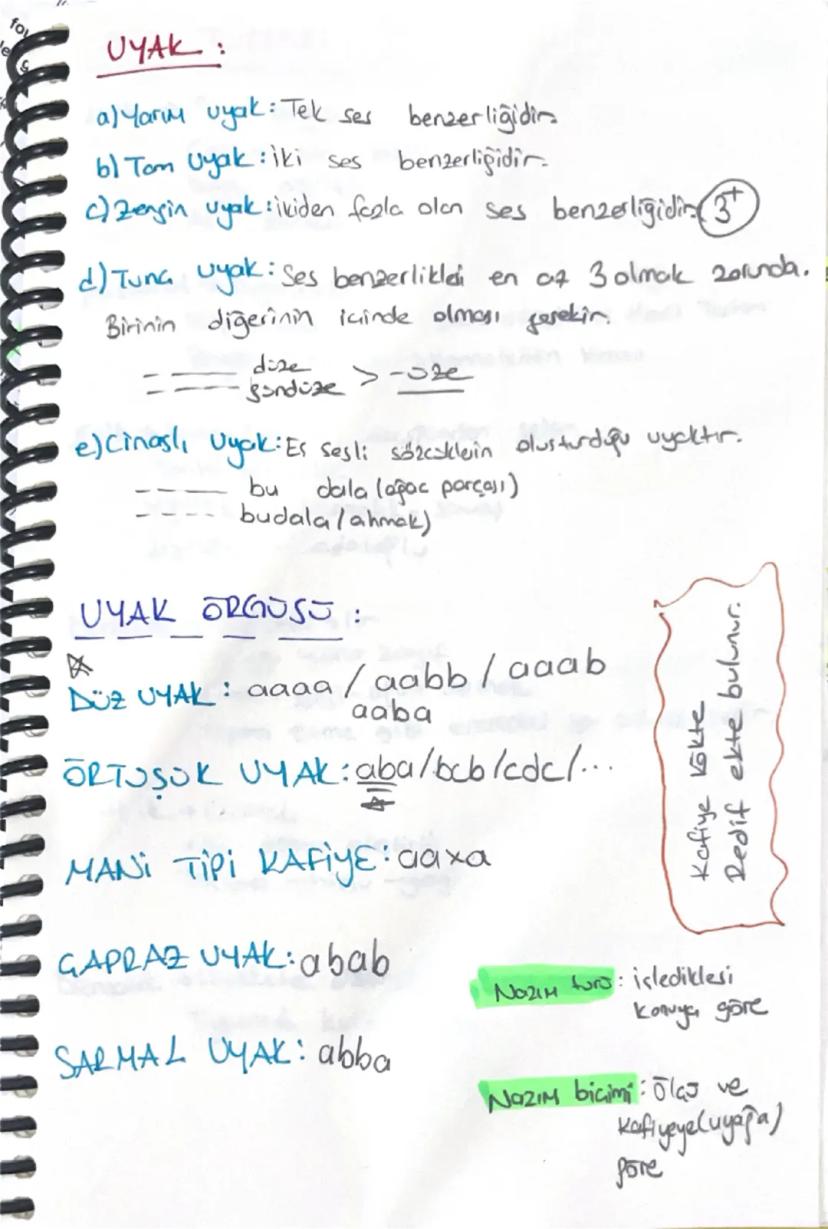 UYAK :
a) Yarım uyak: Tek ses benzerliğidir.
b) Tam uyak: iki ses benzerliğidir.
c) Zengin uyak: ikiden fazla olan ses benzerliğidir. 3+
d) Tunç uyak: Ses benzerlikleri en az 3 olmak zorunda.
Birinin diğerinin içinde olması gerekir.
düze
gündüze > -üze
e) Cinaslı uyak: Eş sesli sözcüklerin oluşturduğu uyaktır.
bu dala (ağaç parçası)
budala (ahmak)
UYAK ÖRGÜSÜ :
DÜZ UYAK: aaaa / aabb / aaab
aaba
ÖRTÜŞÜK UYAK: aba/bcb/cdc/...
MANİ TİPİ KAFİYE: aaxa
ÇAPRAZ UYAK: abab
SARMAL UYAK: abba
Kafiye kökte
Redif ekte bulunur.
Nazım türü: işledikleri
konuya göre
Nazım biçimi: Ölçü ve
kafiyeye (uyağa)
göre